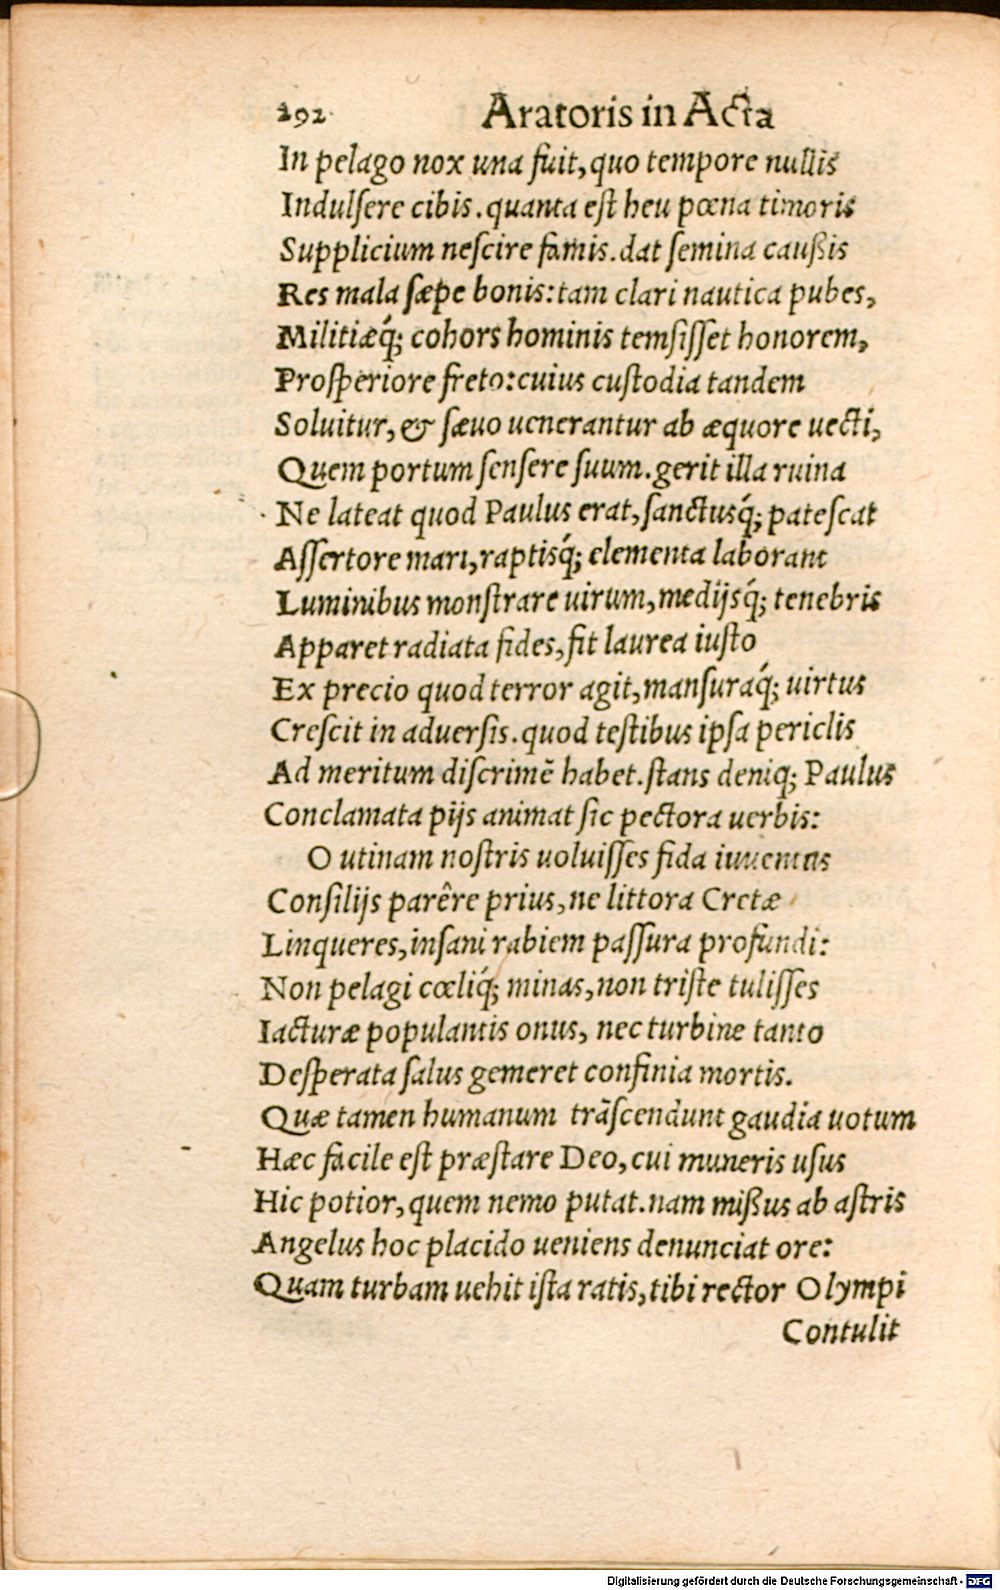 292 Aratoris in Acta
In pelago nox una fuit, quo tempore nullis
Indulſere cibis. quanta eſt heu pœna timoris
Supplicium neſcire famis. dat ſemina cauſsis
Res mala ſæpe bonis: tam clari nautica pubes,
Militiæq́; cohors hominis temſiſſet honorem,
Proſperiore freto: cuius cuſtodia tandem
Soluitur, & ſæuo uenerantur ab æquore uecti,
Quem portum ſenſere ſuum. gerit illa ruina
Ne lateat quod Paulus erat, ſanctusq́; pateſcat
Aſſertore mari, raptisq́; elementa laborant
Luminibus monſtrare uirum, medijsq́; tenebris
Apparet radiata fides, fit laurea iuſto
Ex precio quod terror agit, manſuraq́; uirtus
Creſcit in aduerſis. quod teſtibus ipſa periclis
Ad meritum diſcrimē habet. ſtans deniq; Paulus
Conclamata pijs animat ſic pectora uerbis:
O utinam noſtris uoluiſſes fida iuuentus
Conſilijs parêre prius, ne littora Cretæ
Linqueres, inſani rabiem paſſura profundi:
Non pelagi cœliq́; minas, non triſte tuliſſes
Iacturæ populantis onus, nec turbine tanto
Deſperata ſalus gemeret confinia mortis.
Quæ tamen humanum trāſcendunt gaudia uotum
Hæc facile eſt præſtare Deo, cui muneris uſus
Hic potior, quem nemo putat. nam miſsus ab aſtris
Angelus hoc placido ueniens denunciat ore:
Quam turbam uehit iſta ratis, tibi rector Olympi
Contulit
Digitalisierung gefördert durch die Deutsche Forschungsgemeinschaft - DFG